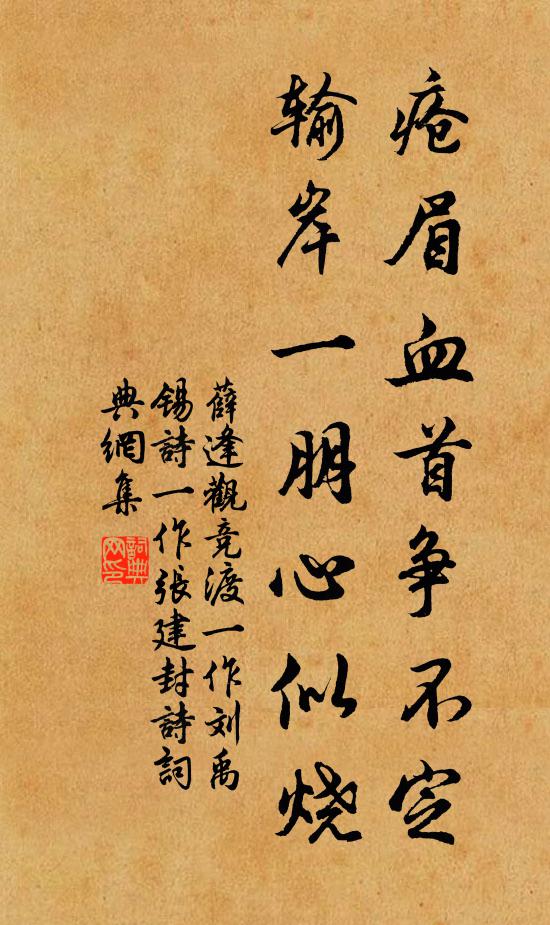 疮眉血首争不定
输岸一朋心似烧
薛逢觀竞渡一作刘禹
锡詩一作張建封詩詞
典網集
詞典网印